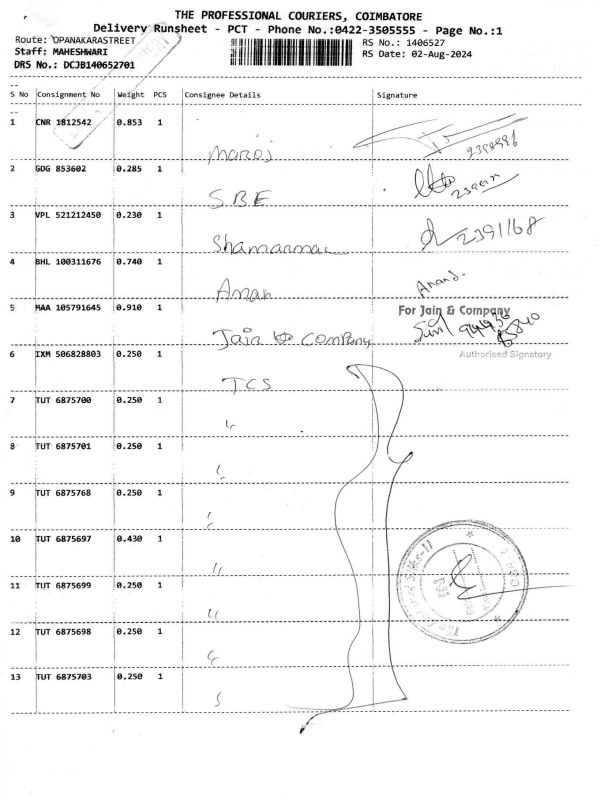 THE PROFESSIONAL COURIERS, COIMBATORE
Delivery Runsheet - PCT - Phone No.:0422-3505555 - Page No.:1
Route: OPANAKARASTREET
RS No.: 1406527
Staff: MAHESHWARI
RS Date: 02-Aug-2024
DRS No.: DCJB140652701
S No Consignment No Weight PCS Consignee Details Signature
1 CNR 1812542 0.853 1
Manoj
2 GDG 853602 0.285 1
S.B.E
3 VPL 521212450 0.230 1 2391168
4 BHL 100311676 0.740 1 Anand.
5 MAA 105791645 0.910 1 For Jain & Company
Jain & Company
6 IXM 506828803 0.250 1 Authorised Signatory
TCS
7 TUT 6875700 0.250 1
"
8 TUT 6875701 0.250 1
9 TUT 6875768 0.250 1
"
10 TUT 6875697 0.430 1
"
11 TUT 6875699 0.250 1
"
12 TUT 6875698 0.250 1
13 TUT 6875703 0.250 1